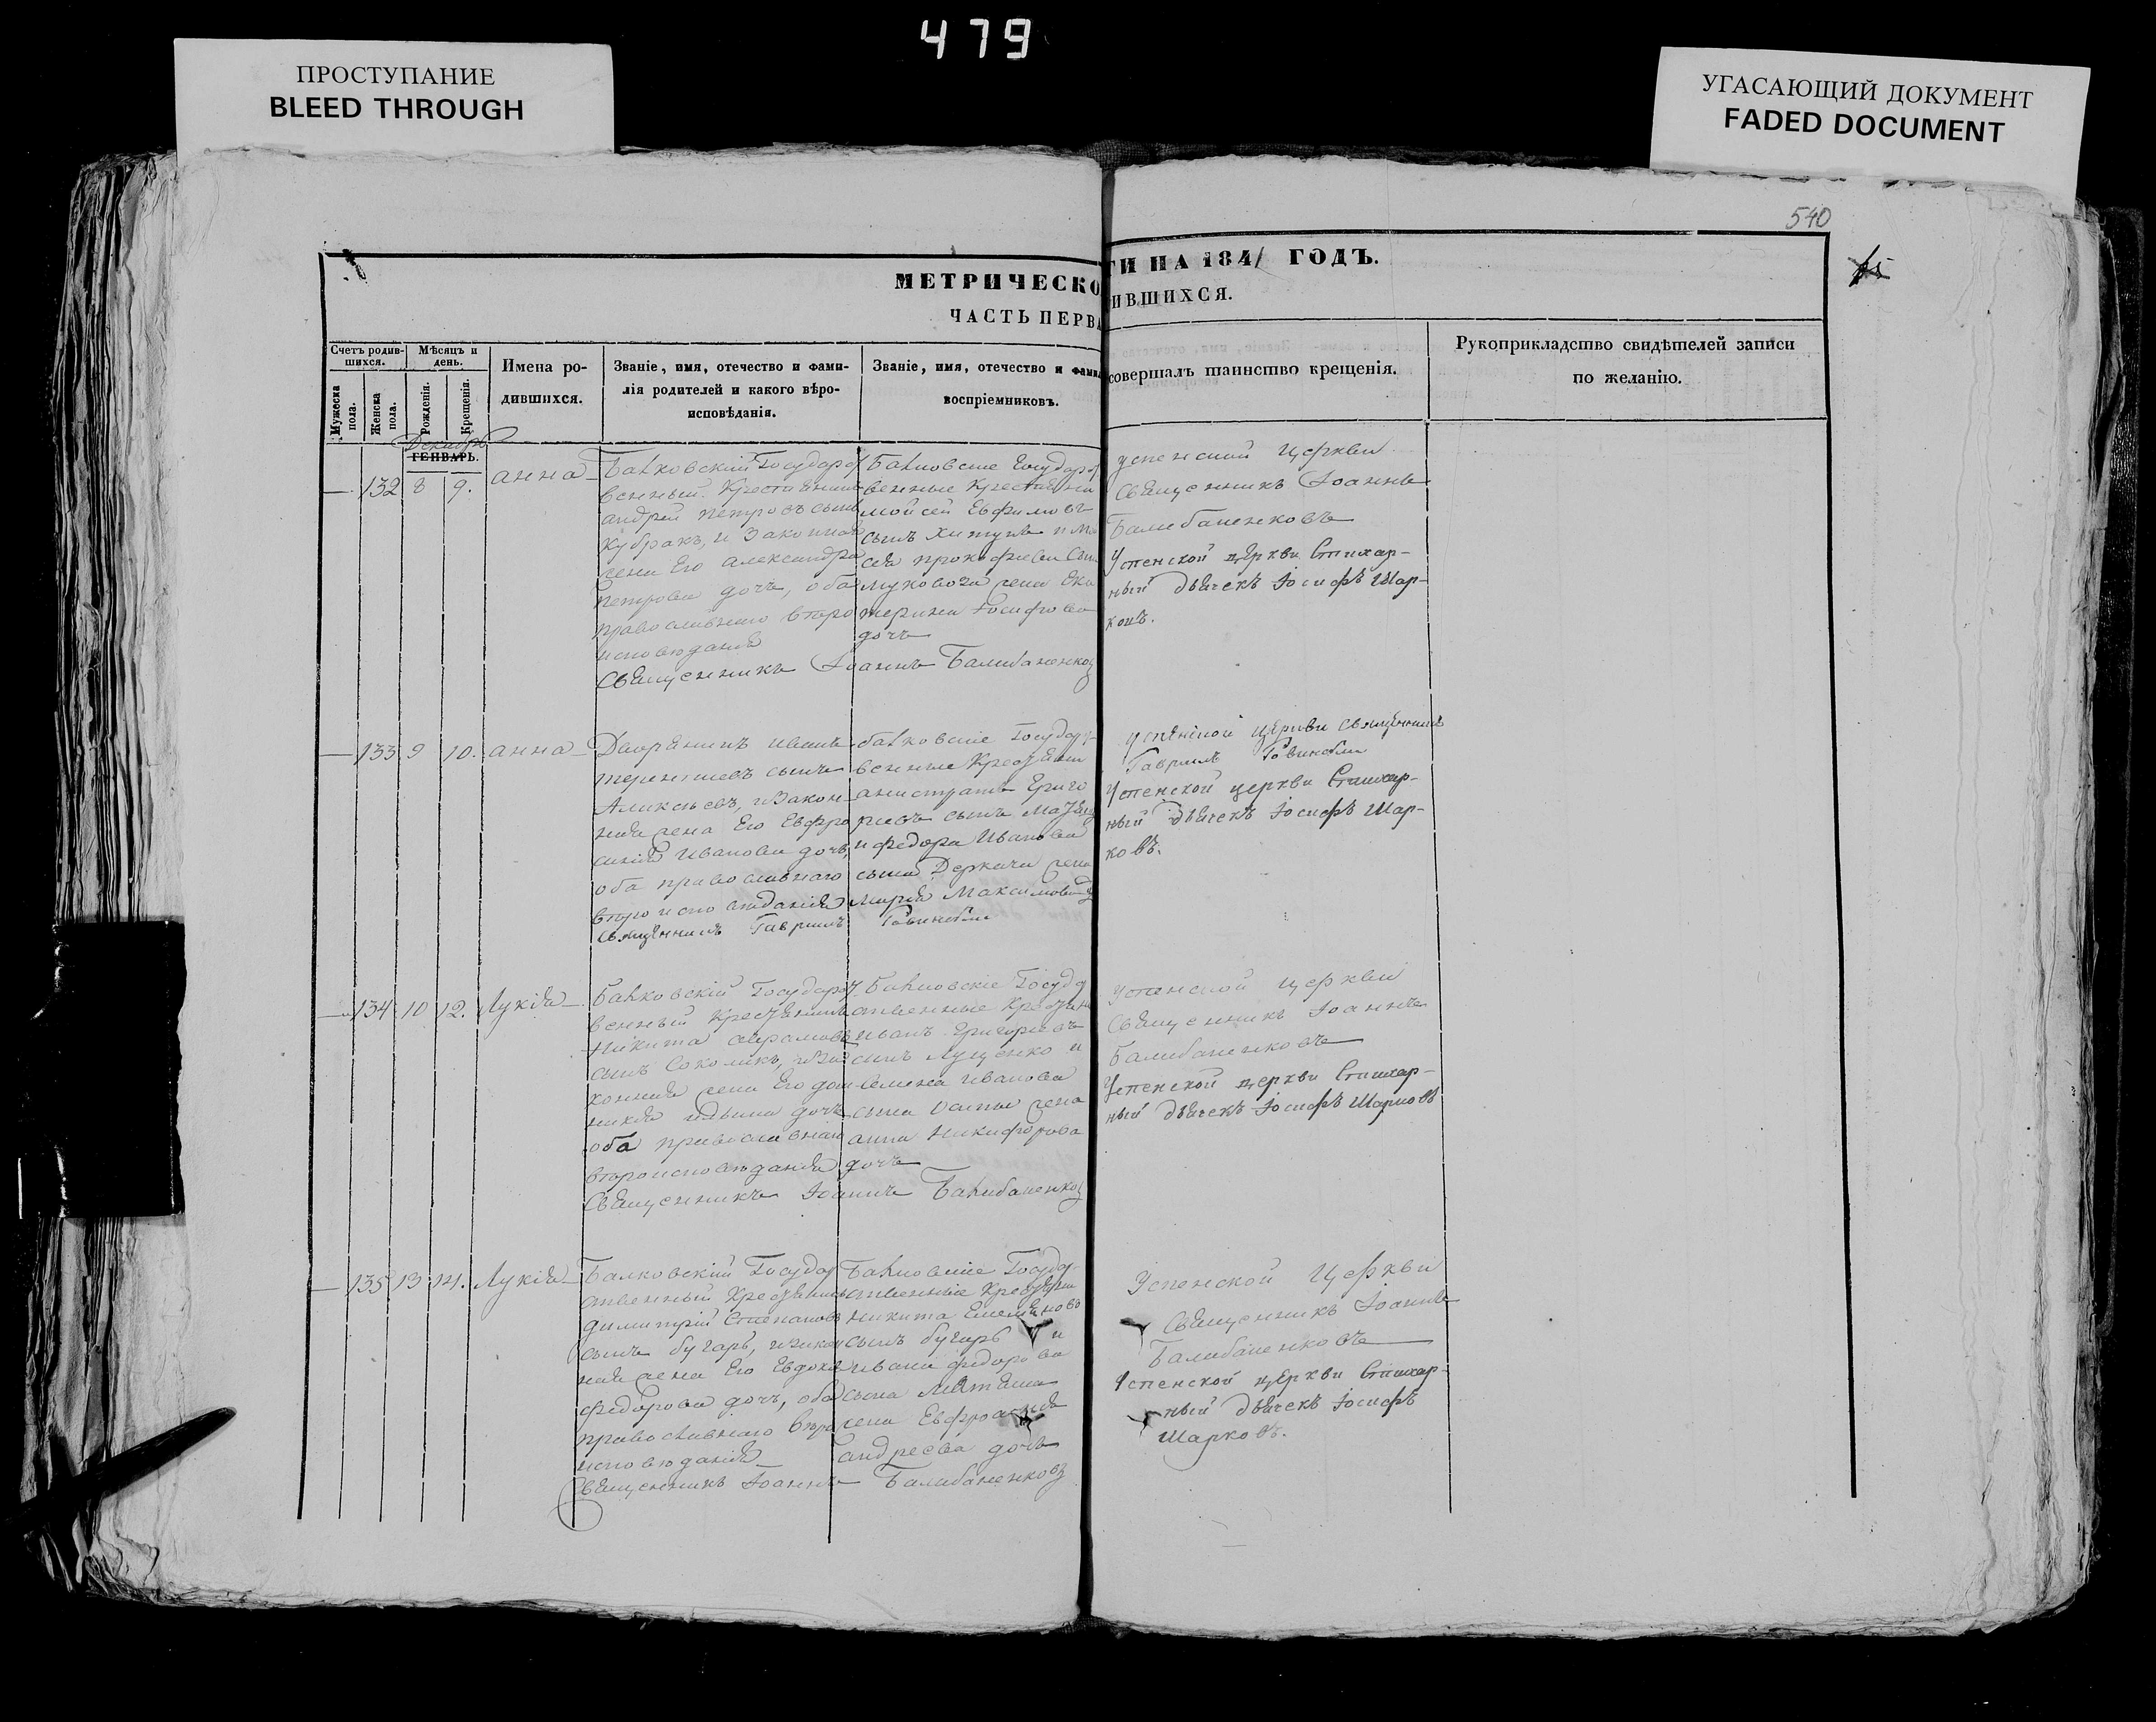 479
ПРОСТУПАНИЕ
BLEED THROUGH
УГАСАЮЩИЙ ДОКУМЕНТ
FADED DOCUMENT
540
МЕТРИЧЕСКО
ТИ НА 1841 ГОДЪ.
ЧАСТЬ ПЕРВА
ИВШИХСЯ.
Счетъ родив-
шихся.
Мужеска
пола.
Женска
пола.
Мѣсяцъ и
день.
Рожденія.
Крещенія.
Имена ро-
дившихся.
Званіе, имя, отечество и фами-
лія родителей и какого вѣро-
исповѣданія.
Званіе, имя, отечество и фами
воспріемниковъ.
совершалъ таинство крещенія.
Рукоприкладство свидѣтелей записи
по желанію.
Декабрь
ГЕНВАРЬ.
132 8 9. анна
Балковскій Государст
венный Крестьянинъ
андрей петровъ сынъ
Кубракъ, и Законная
жена Его александра
петрова дочь, оба
православнаго вѣро
исповѣданія
Балковские Государст
венные Крестьяни
мойсей Евфимовъ
сынъ
прокофиева
жена Ека
терина Іосифова
дочь
Священникъ Іоаннъ Балабаненковъ
успенской Церкви
Священникъ Іоаннъ
Балабаненковъ
Успенской церкви Стихар-
ный дьячекъ Іосифъ Шар-
ковъ.
133 9 10. анна
Дворянинъ иванъ
терентиевъ сынъ
Аликсѣевъ, и Закон-
ная жена Его Евфро
синія Иванова дочь,
оба православнаго
вѣроисповѣданія
балковские Государст
венные Крестьяни
Григо
риевъ сынъ
и федора Иванова
сына Деркача жена
мария Максимова
священникъ Гавриилъ
успенской церкви священникъ
Гавриилъ
Успенской церкви Стихар-
ный Дьячекъ Іосифъ Шар-
ковъ.
134 10 12. Лукія
Балковскій Государст
венный Крестьянинъ
Никита аврамовъ
сынъ Соколикъ, и За
конная жена Его дом
никія дочь
оба православнаго
вѣроисповѣданія
Балковскіе Госуда
рственные Крестьяни
иванъ Григориевъ
сынъ Луценко и
Семена иванова
сына жена
анна Никифорова
дочь
Священникъ Іоаннъ Балабаненковъ
Успенской Церкви
Священникъ Іоаннъ
Балабаненковъ
Успенской церкви Стихар-
ный дьячекъ Іосифъ Шарковъ
135 13 14. Лукія
Балковский Государ
ственный Крестьянинъ
димитрій Степановъ
сынъ бугаръ, и закон
ная жена Его Евдокия
федорова дочь, оба
православнаго вѣро
исповѣданія
Балковские Государ
ственные Крестьяни
никита
сынъ бугаръ и
ивана федорова
сына
жена Евфросиния
андреева дочь
Священникъ Іоаннъ Балабаненковъ
Успенской Церкви
Священникъ Іоаннъ
Балабаненковъ
Успенской церкви Стихар-
ный дьячекъ Іосифъ
Шарковъ.